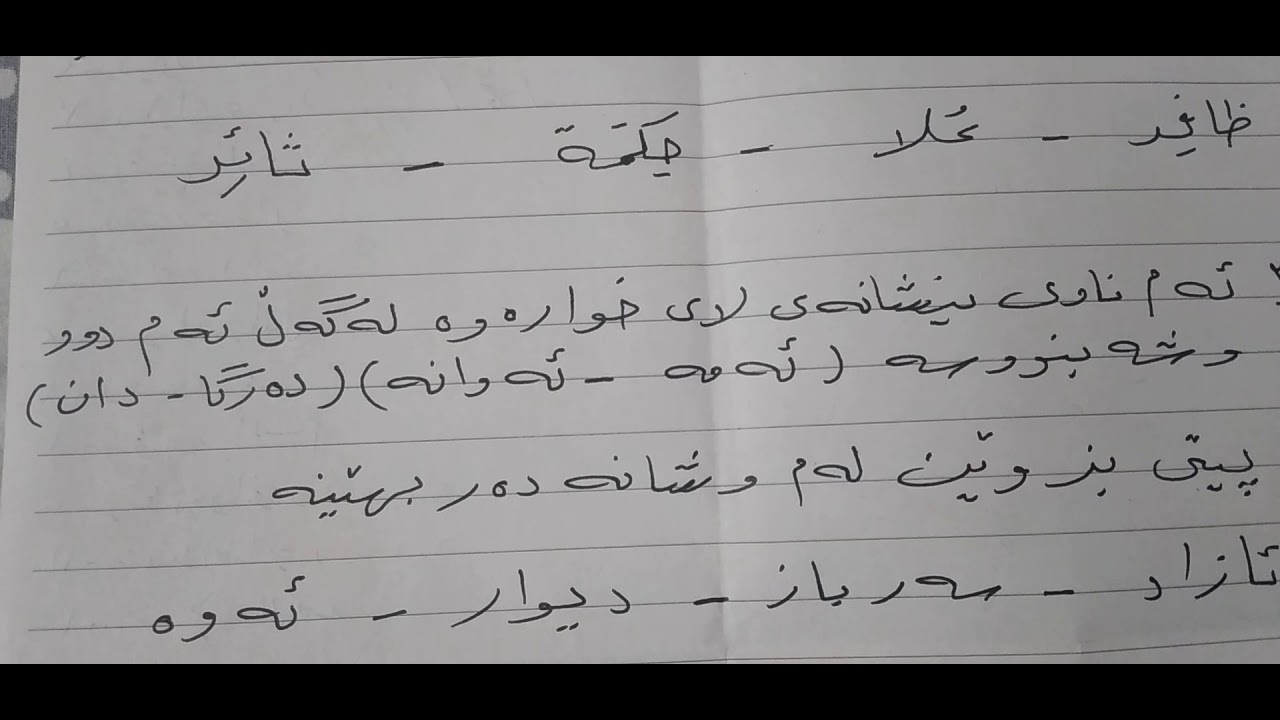 ظافِر - عُلا - حِكمَة - ثائِر
ئەم ناوی نیشانەی لای خوارەوە لەگەڵ ئەم دوو
وشە بنووسە (ئەمە - ئەوانە) (دەرگا - دان)
پیتی بزوێن لەم وشانە دەر بهێنە
ئازاد - سەرباز - دیوار - ئەوە